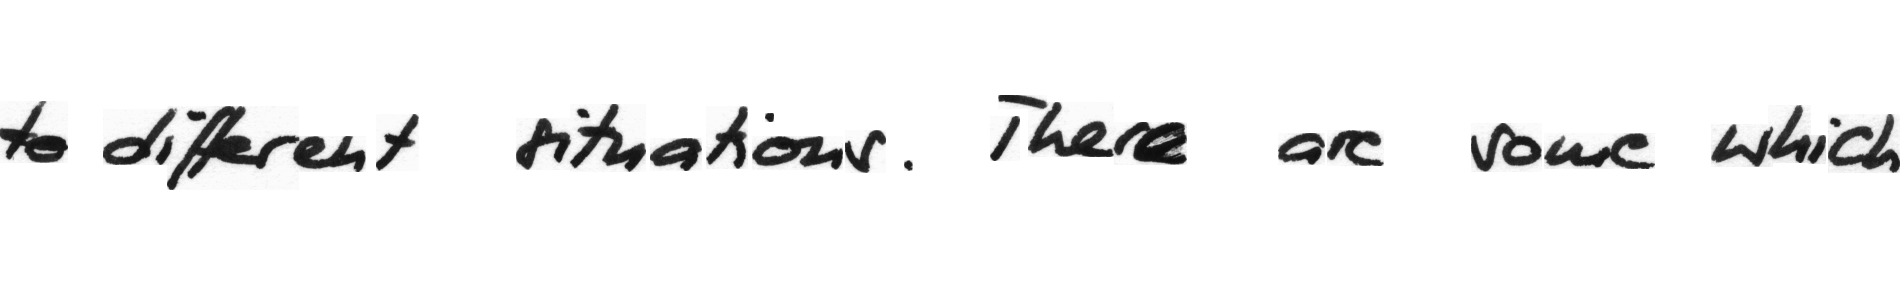 to different situations. There are some which